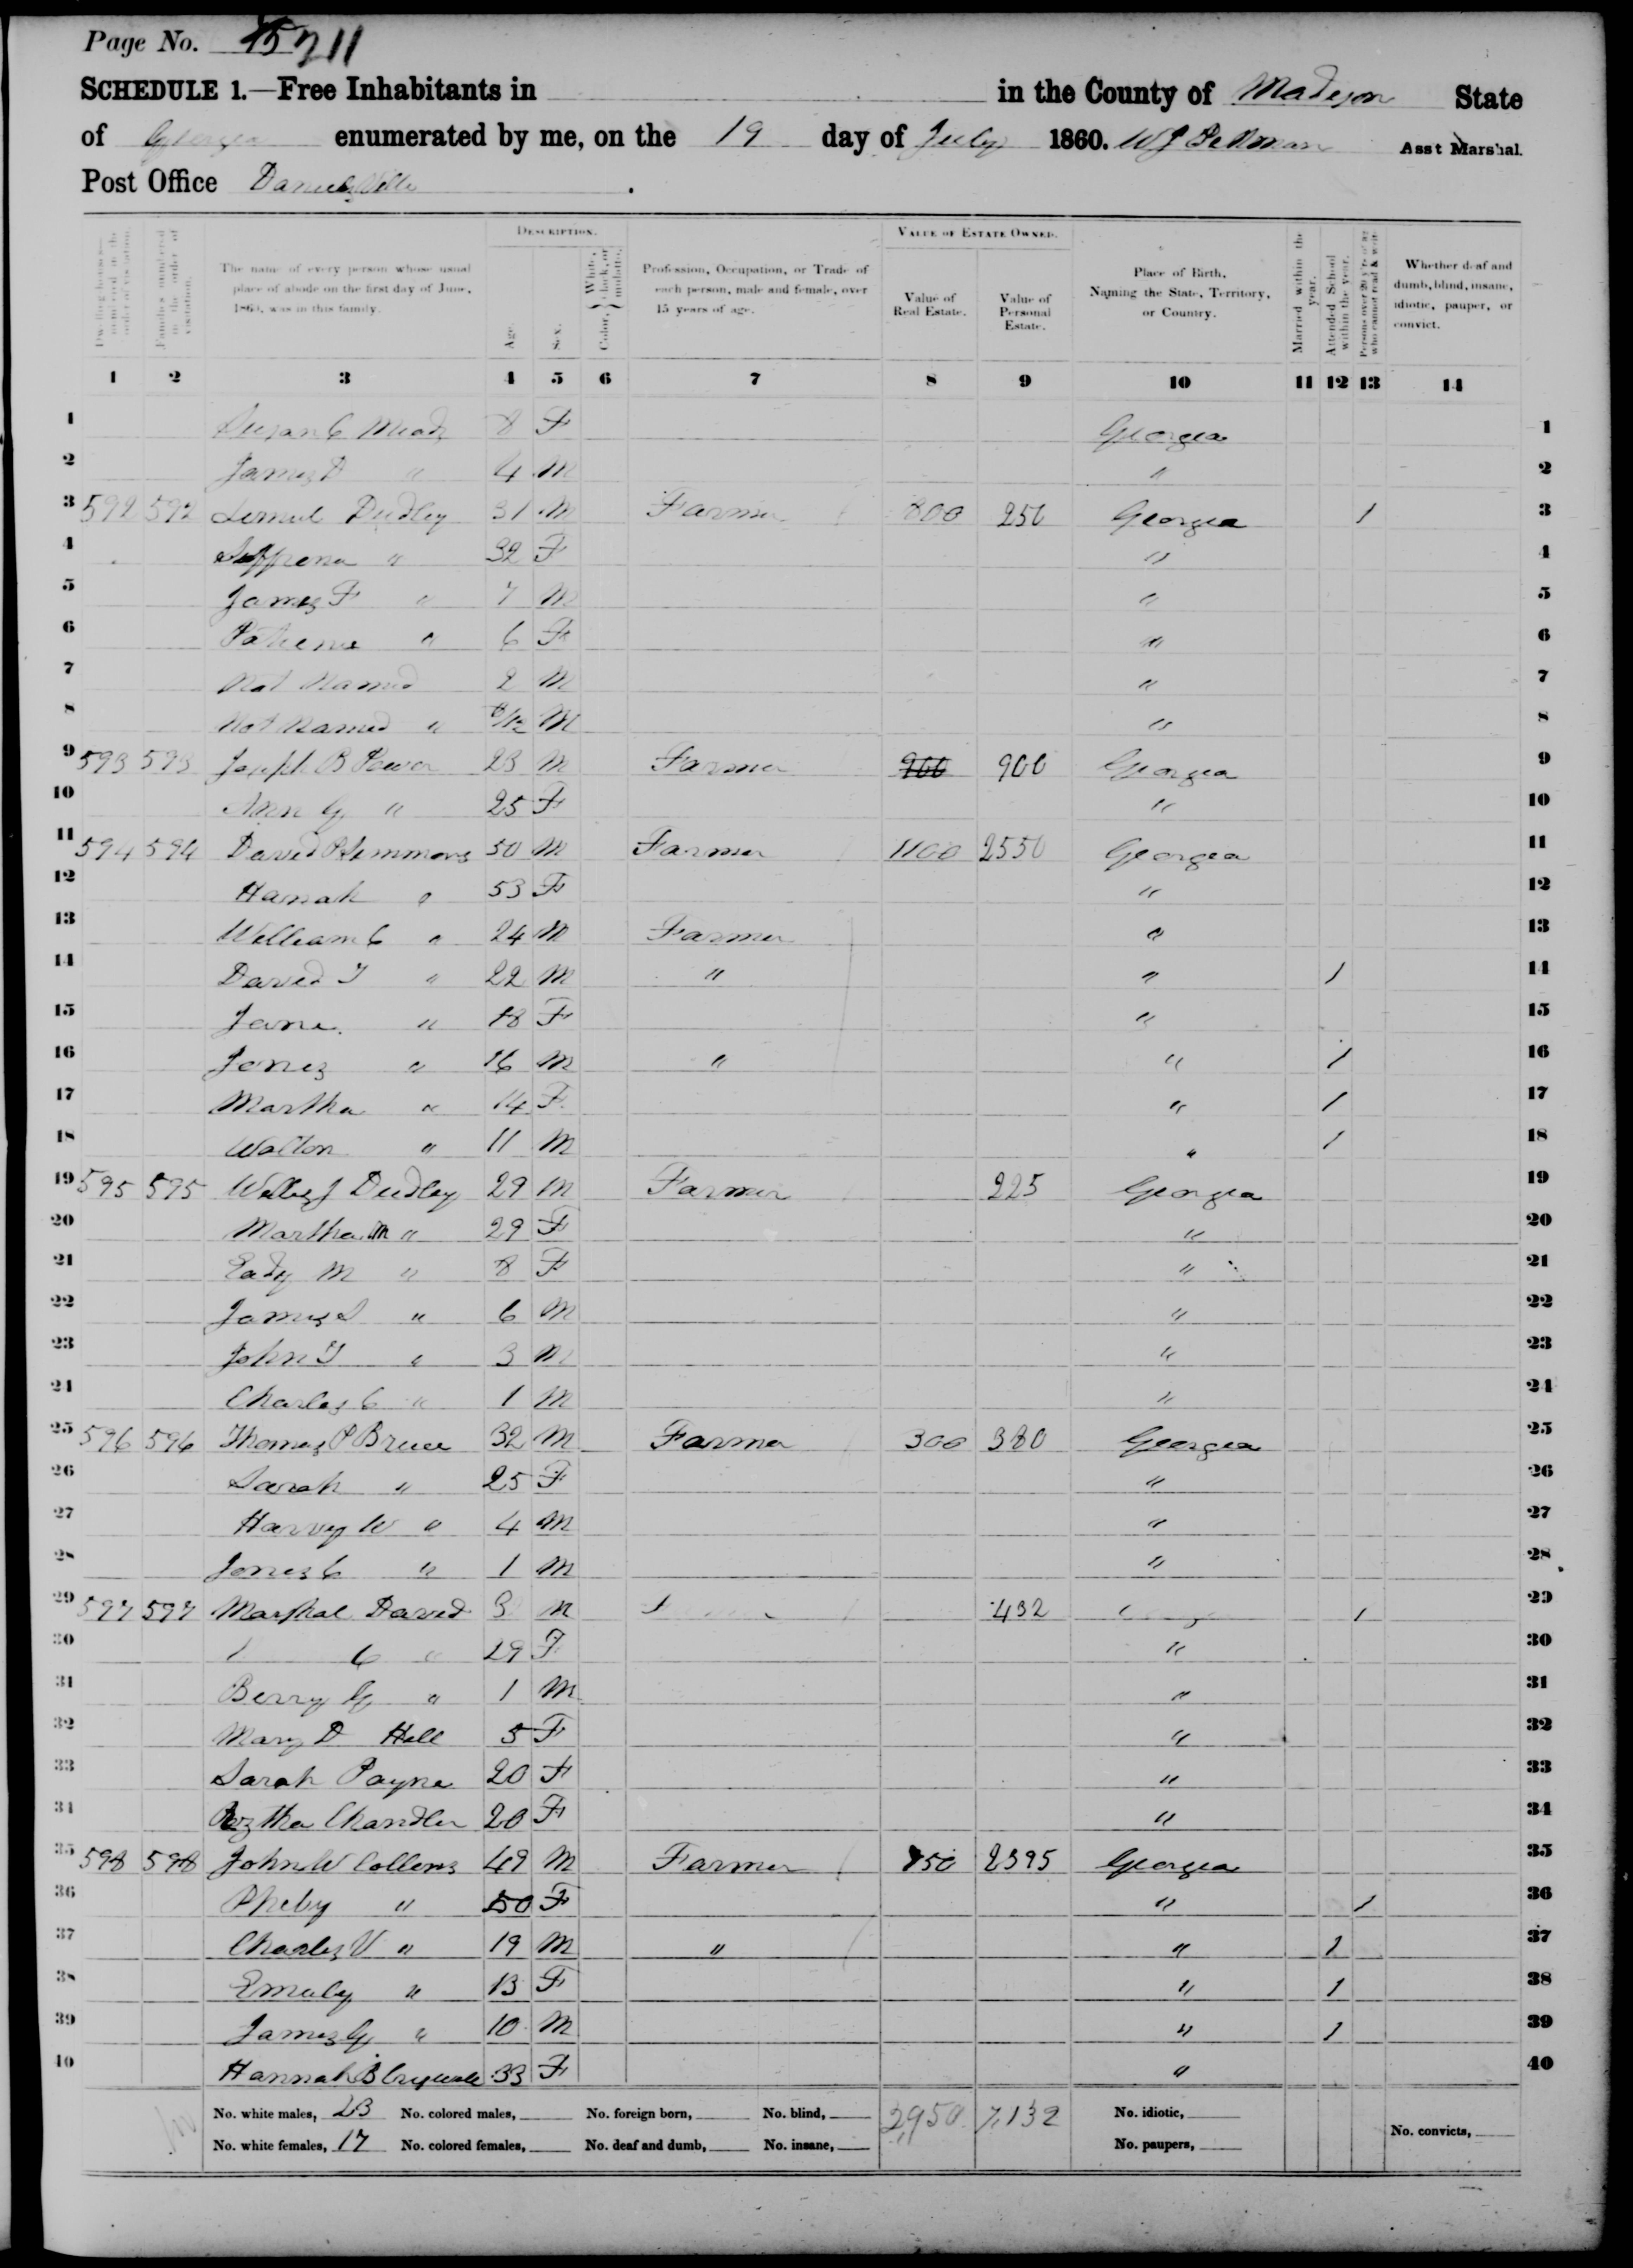 Page No. 45 211
SCHEDULE 1.—Free Inhabitants in in the County of Madison State
of Georgia enumerated by me, on the 19 day of July 1860. Asst Marshal.
Post Office Danielsville
DESCRIPTION. VALUE OF ESTATE OWNED.
Dwelling-houses—numbered in the order of visitation. Families numbered in the order of visitation. The name of every person whose usual place of abode on the first day of June, 1860, was in this family. Age. Sex. Color, { White, black, or mulatto. Profession, Occupation, or Trade of each person, male and female, over 15 years of age. Value of Real Estate. Value of Personal Estate. Place of Birth, Naming the State, Territory, or Country. Married within the year. Attended School within the year. Persons over 20 y'rs of age who cannot read & write. Whether deaf and dumb, blind, insane, idiotic, pauper, or convict.
1 2 3 4 5 6 7 8 9 10 11 12 13 14
1 Susan C 8 F Georgia 1
2 James D " 4 M " 2
3 592 592 Lemul Dudley 31 M Farmer 800 250 Georgia / 3
4 " 32 F " 4
5 James F " 7 M " 5
6 " 6 F " 6
7 Not Named 2 M " 7
8 Not Named " M " 8
9 593 593 Joseph B Power 23 M Farmer 900 900 Georgia 9
10 Ann G " 25 F " 10
11 594 594 David P Simmons 50 M Farmer 1100 2550 Georgia 11
12 Hanah " 53 F " 12
13 William C " 24 M Farmer " 13
14 David T " 22 M " " / 14
15 Jane " 18 F " 15
16 Jones " 16 M " " / 16
17 Martha " 14 F " / 17
18 Walton " 11 M " / 18
19 595 595 J Dudley 29 M Farmer 225 Georgia 19
20 Martha M " 29 F " 20
21 Eady M " 8 F " 21
22 James S " 6 M " 22
23 John T " 3 M " 23
24 Charles C " 1 M " 24
25 596 596 Thomas P Bruce 32 M Farmer 300 380 Georgia 25
26 Sarah " 25 F " 26
27 Harvey W " 4 M " 27
28 Jones C " 1 M " 28
29 597 597 Marshal David M 432 / 29
30 C " 29 F " 30
31 Berry G " 1 M " 31
32 Mary D Hall 5 F " 32
33 Sarah Payne 20 F " 33
34 Chandler 20 F " 34
35 598 598 John W Collens 49 M Farmer 750 2395 Georgia 35
36 Pheby " 50 F " / 36
37 Charles V " 19 M " " / 37
38 Emaly " 13 F " / 38
39 James G " 10 M " / 39
40 Hannah B 33 F " 40
No. white males, 23 No. colored males, No. foreign born, No. blind, 2,950 7,132 No. idiotic,
No. white females, 17 No. colored females, No. deaf and dumb, No. insane, No. paupers, No. convicts,